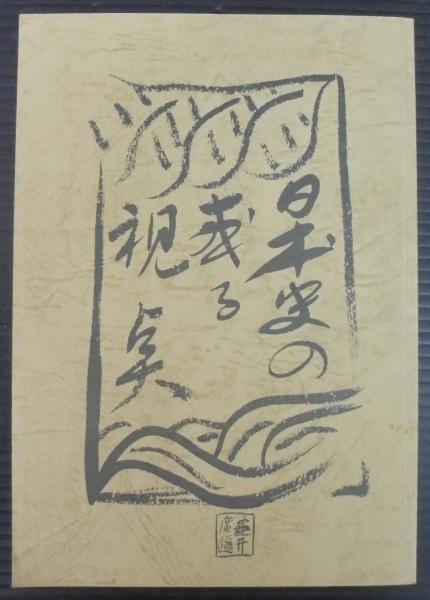 日本史の
或る
視点
亀井